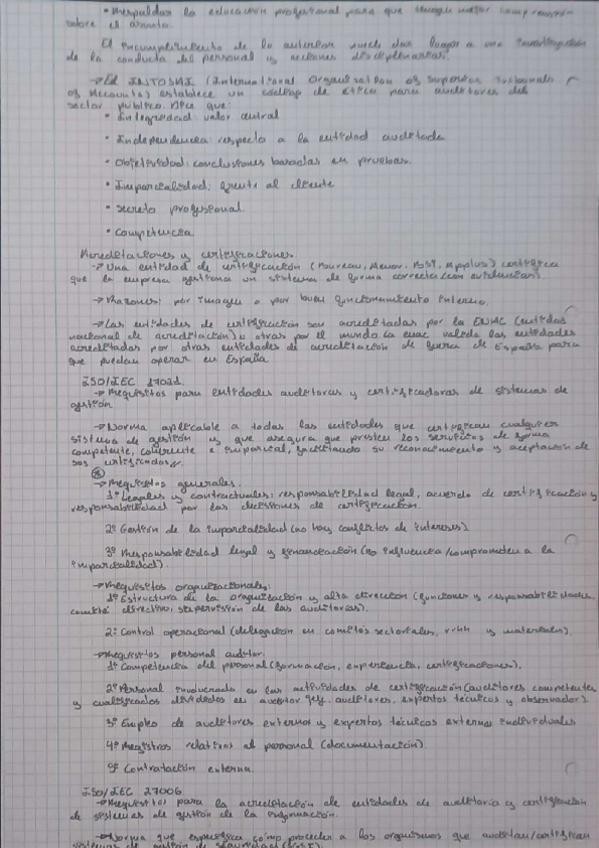 • Respaldar la educación profesional para que tengan mejor comprensión
sobre el asunto.
El incumplimiento de lo anterior puede dar lugar a una investigación
de la conducta del personal y acciones disciplinarias.
→ El INTOSAI (International Organisation of Supreme
of Accounts) establece un código de ética para auditores del
sector público. Dice que:
• Integridad: valor central
• Independencia: respecto a la entidad auditada
• Objetividad: conclusiones basadas en pruebas.
• Imparcialidad: frente al cliente
• Secreto profesional.
• Competencia
Acreditaciones y certificaciones.
→ Una entidad de certificación (Bureau, Aenor, BSI, Applus) certifica
que la empresa gestiona un sistema de forma correcta (con evidencias).
→ Razones: por imagen o por buen funcionamiento interno.
→ Las entidades de certificación son acreditadas por la ENAC (entidad
nacional de acreditación) u otras por el mundo. La enac valida las entidades
acreditadas por otras entidades de acreditación de fuera de España para
que puedan operar en España
ISO/IEC 17021
→ Requisitos para entidades auditoras y certificadoras de sistemas de
gestión
→ Norma aplicable a todas las entidades que certifican cualquier
sistema de gestión y que asegura que presten los servicios de forma
competente, coherente e imparcial, facilitando su reconocimiento y aceptación de
sus certificados.
→ Requisitos generales.
1º Legales y contractuales: responsabilidad legal, acuerdo de certificación y
responsabilidad por las decisiones de certificación.
2º Gestión de la imparcialidad (no hay conflictos de intereses)
3º Responsabilidad legal y financiación (no influencia/comprometen a la
imparcialidad).
→ Requisitos organizacionales:
1º Estructura de la organización y alta dirección (funciones y responsabilidades,
comité directivo, supervisión de las auditorías).
2º Control operacional (delegación en comités sectoriales, rrhh y materiales).
→ Requisitos personal auditor:
1º Competencia del personal (formación, experiencia, certificaciones).
2º Personal involucrado en las actividades de certificación (auditores competentes
y cualificados divididos en auditor jefe, auditores, expertos técnicos y observador)
3º Empleo de auditores externos y expertos técnicos externos individuales
4º Registros relativos al personal (documentación)
5º Contratación externa.
ISO/IEC 27006
→ Requisitos para la acreditación de entidades de auditoría y certificación
de sistemas de gestión de la información.
→ Norma que especifica cómo proceder a los organismos que auditan/certifican
sistemas de gestión de seguridad (SGSI).